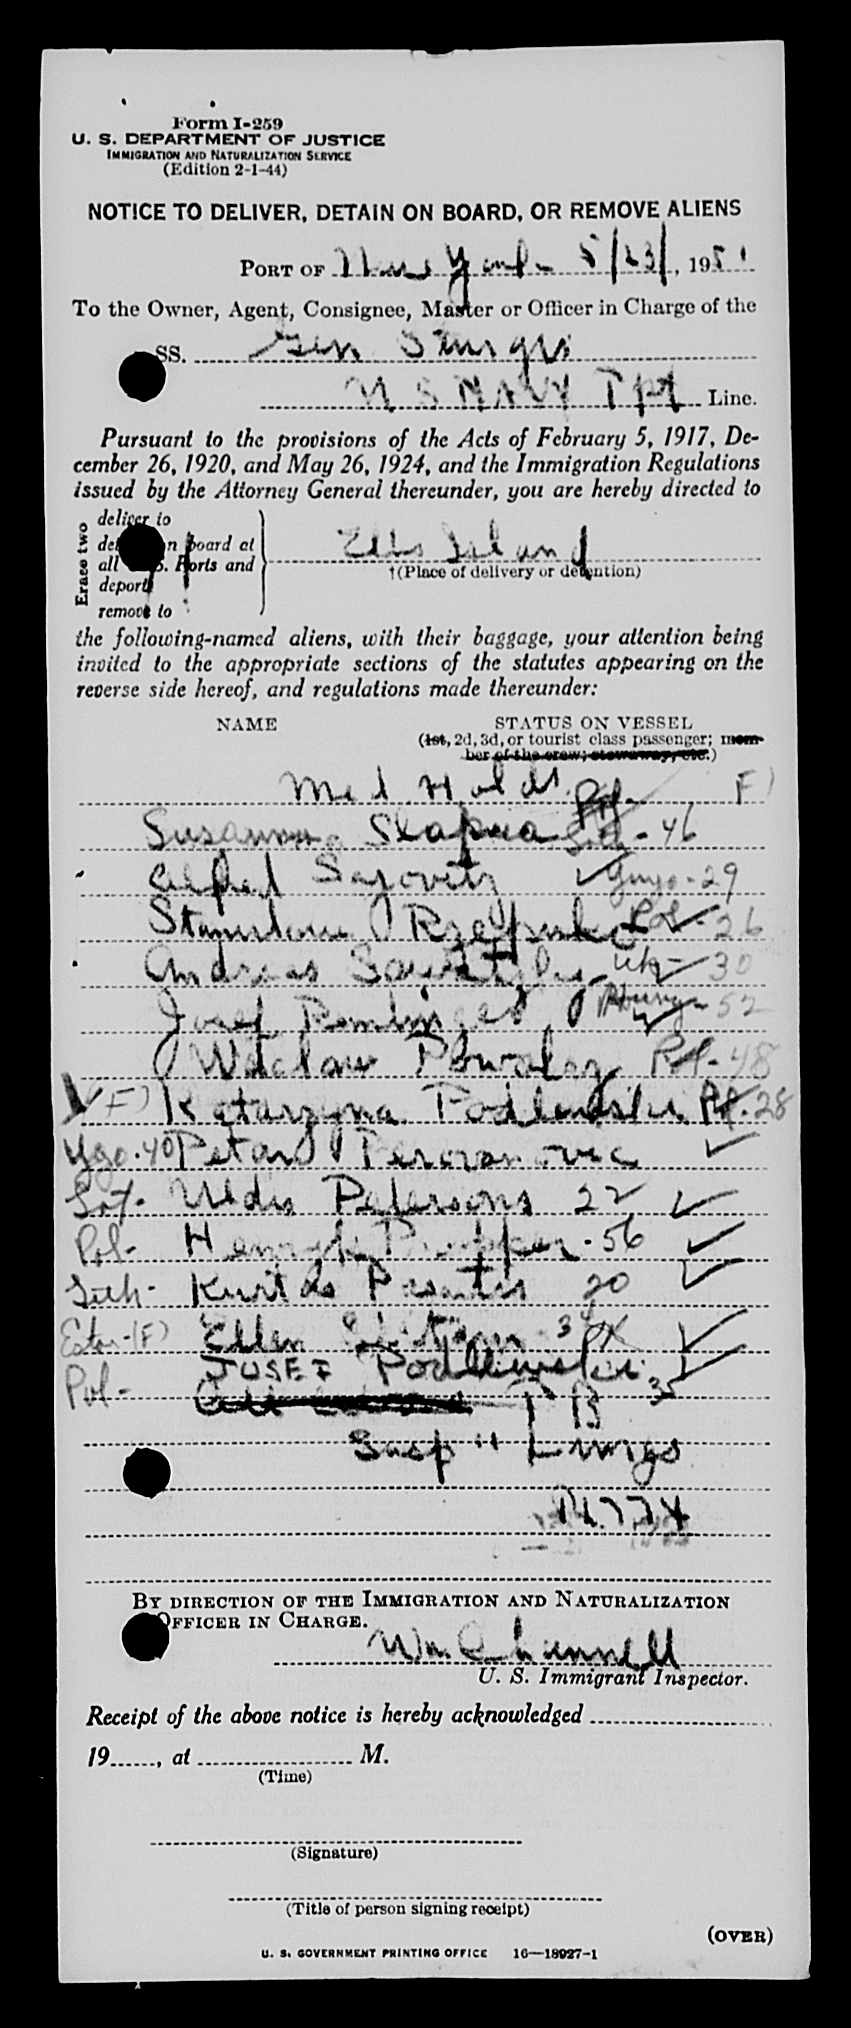 Form I-259
U. S. DEPARTMENT OF JUSTICE
IMMIGRATION AND NATURALIZATION SERVICE
(Edition 2-1-44)
NOTICE TO DELIVER, DETAIN ON BOARD, OR REMOVE ALIENS
PORT OF New York 5/23/, 1951
To the Owner, Agent, Consignee, Master or Officer in Charge of the
SS. Gen Sturgis
U S NAVY Tpt Line.
Pursuant to the provisions of the Acts of February 5, 1917, De-
cember 26, 1920, and May 26, 1924, and the Immigration Regulations
issued by the Attorney General thereunder, you are hereby directed to
Erase two
deliver to
on board at
all Ports and
deport
remove to
Ellis Island
†(Place of delivery or detention)
the following-named aliens, with their baggage, your attention being
invited to the appropriate sections of the statutes appearing on the
reverse side hereof, and regulations made thereunder:
NAME STATUS ON VESSEL
(1st, 2d, 3d, or tourist class passenger; mem-
ber of the crew; stowaway, etc.)
Med Holds. F)
Susanna 46
Alfred Sajovitz 29
Pol - 26
Andreas Uk - 30
Josef Hung - 52
Waclaw Powalsz Pol - 48
F) Katarzyna Podlewska Pol. 28
Ygo. 40 Petar
Lat. Uldis Petersons 22
Pol - Henryk - 56
Lith - Kurt 20
Eston - (F) Ellen 34
Pol - JOSEF Podlewski 35
TB
Susp " Lungs
BY DIRECTION OF THE IMMIGRATION AND NATURALIZATION
OFFICER IN CHARGE.
Wm Channell
U. S. Immigrant Inspector.
Receipt of the above notice is hereby acknowledged
19......, at M.
(Time)
(Signature)
(Title of person signing receipt)
(OVER)
U. S. GOVERNMENT PRINTING OFFICE 16—18927-1